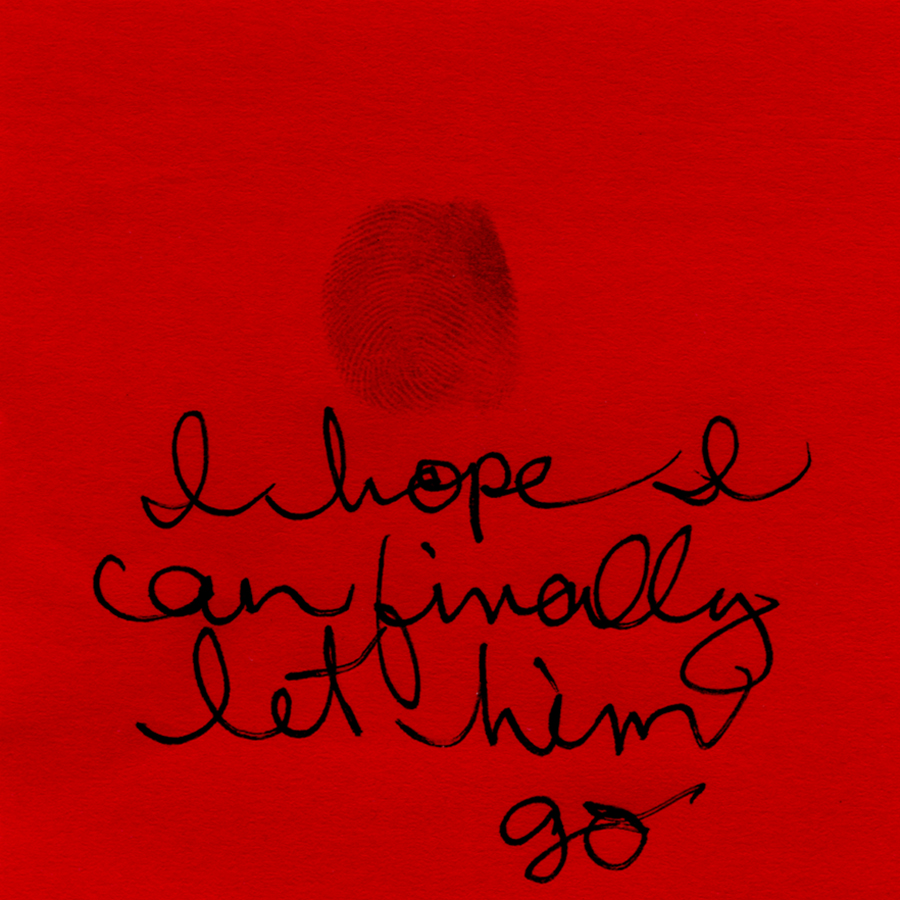 I hope I
can finally
let him
go